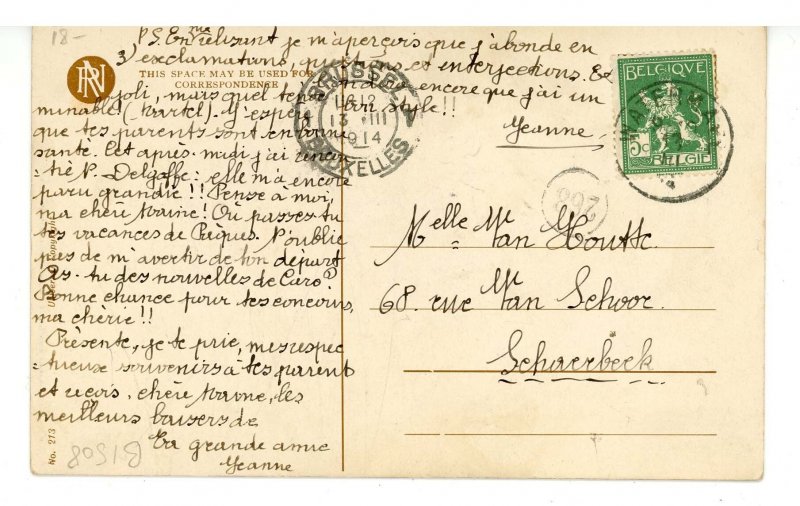 18-
P.S. En me relisant je m'aperçois que j'abonde en
3) exclamations, et interjections. Et
THIS SPACE MAY BE USED FOR
CORRESPONDENCE
encore que j'ai un
joli, mais quel
minable! (Kartel). J'espère bon style!!
Jeanne.
que tes parents sont en bonne
santé. Cet après-midi j'ai rencon-
-tré N. Delgoffe: elle m'a encore
paru grandie!! Pense à moi,
ma chère Naine! Où passes-tu
tes vacances de Pâques. N'oublie
pas de m'avertir de ton départ
As-tu des nouvelles de Caro?
Bonne chance pour tes concours,
ma chérie!!
Présente, je te prie, mes respec-
-tueux souvenirs à tes parents
et reçois, chère Naine, les
meilleurs baisers de
Ta grande amie
Jeanne
No. 213
B1508
BRUSSEL
13 III
1914
BRUXELLES
BELGIQUE
5c
BELGIË
268
Melle Van Houtte.
68. rue Van Schoor.
Schaerbeek